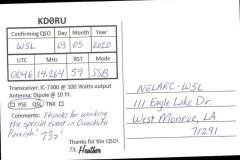 KDØRU
Confirming QSO Day Month Year
W5L 03 05 2020
UTC MHz RST Mode
0046 14.264 59 SSB
Transceiver: IC-7300 @ 100 Watts output
Antenna: Dipole @ 10 Ft.
PSE QSL TNX
Comments: Thanks for working
the special event in Ouachita
Parrish! 73s!
Thanks for the QSO!
73, Heather
NELARC-W5L
111 Eagle Lake Dr.
West Monroe, LA
71291